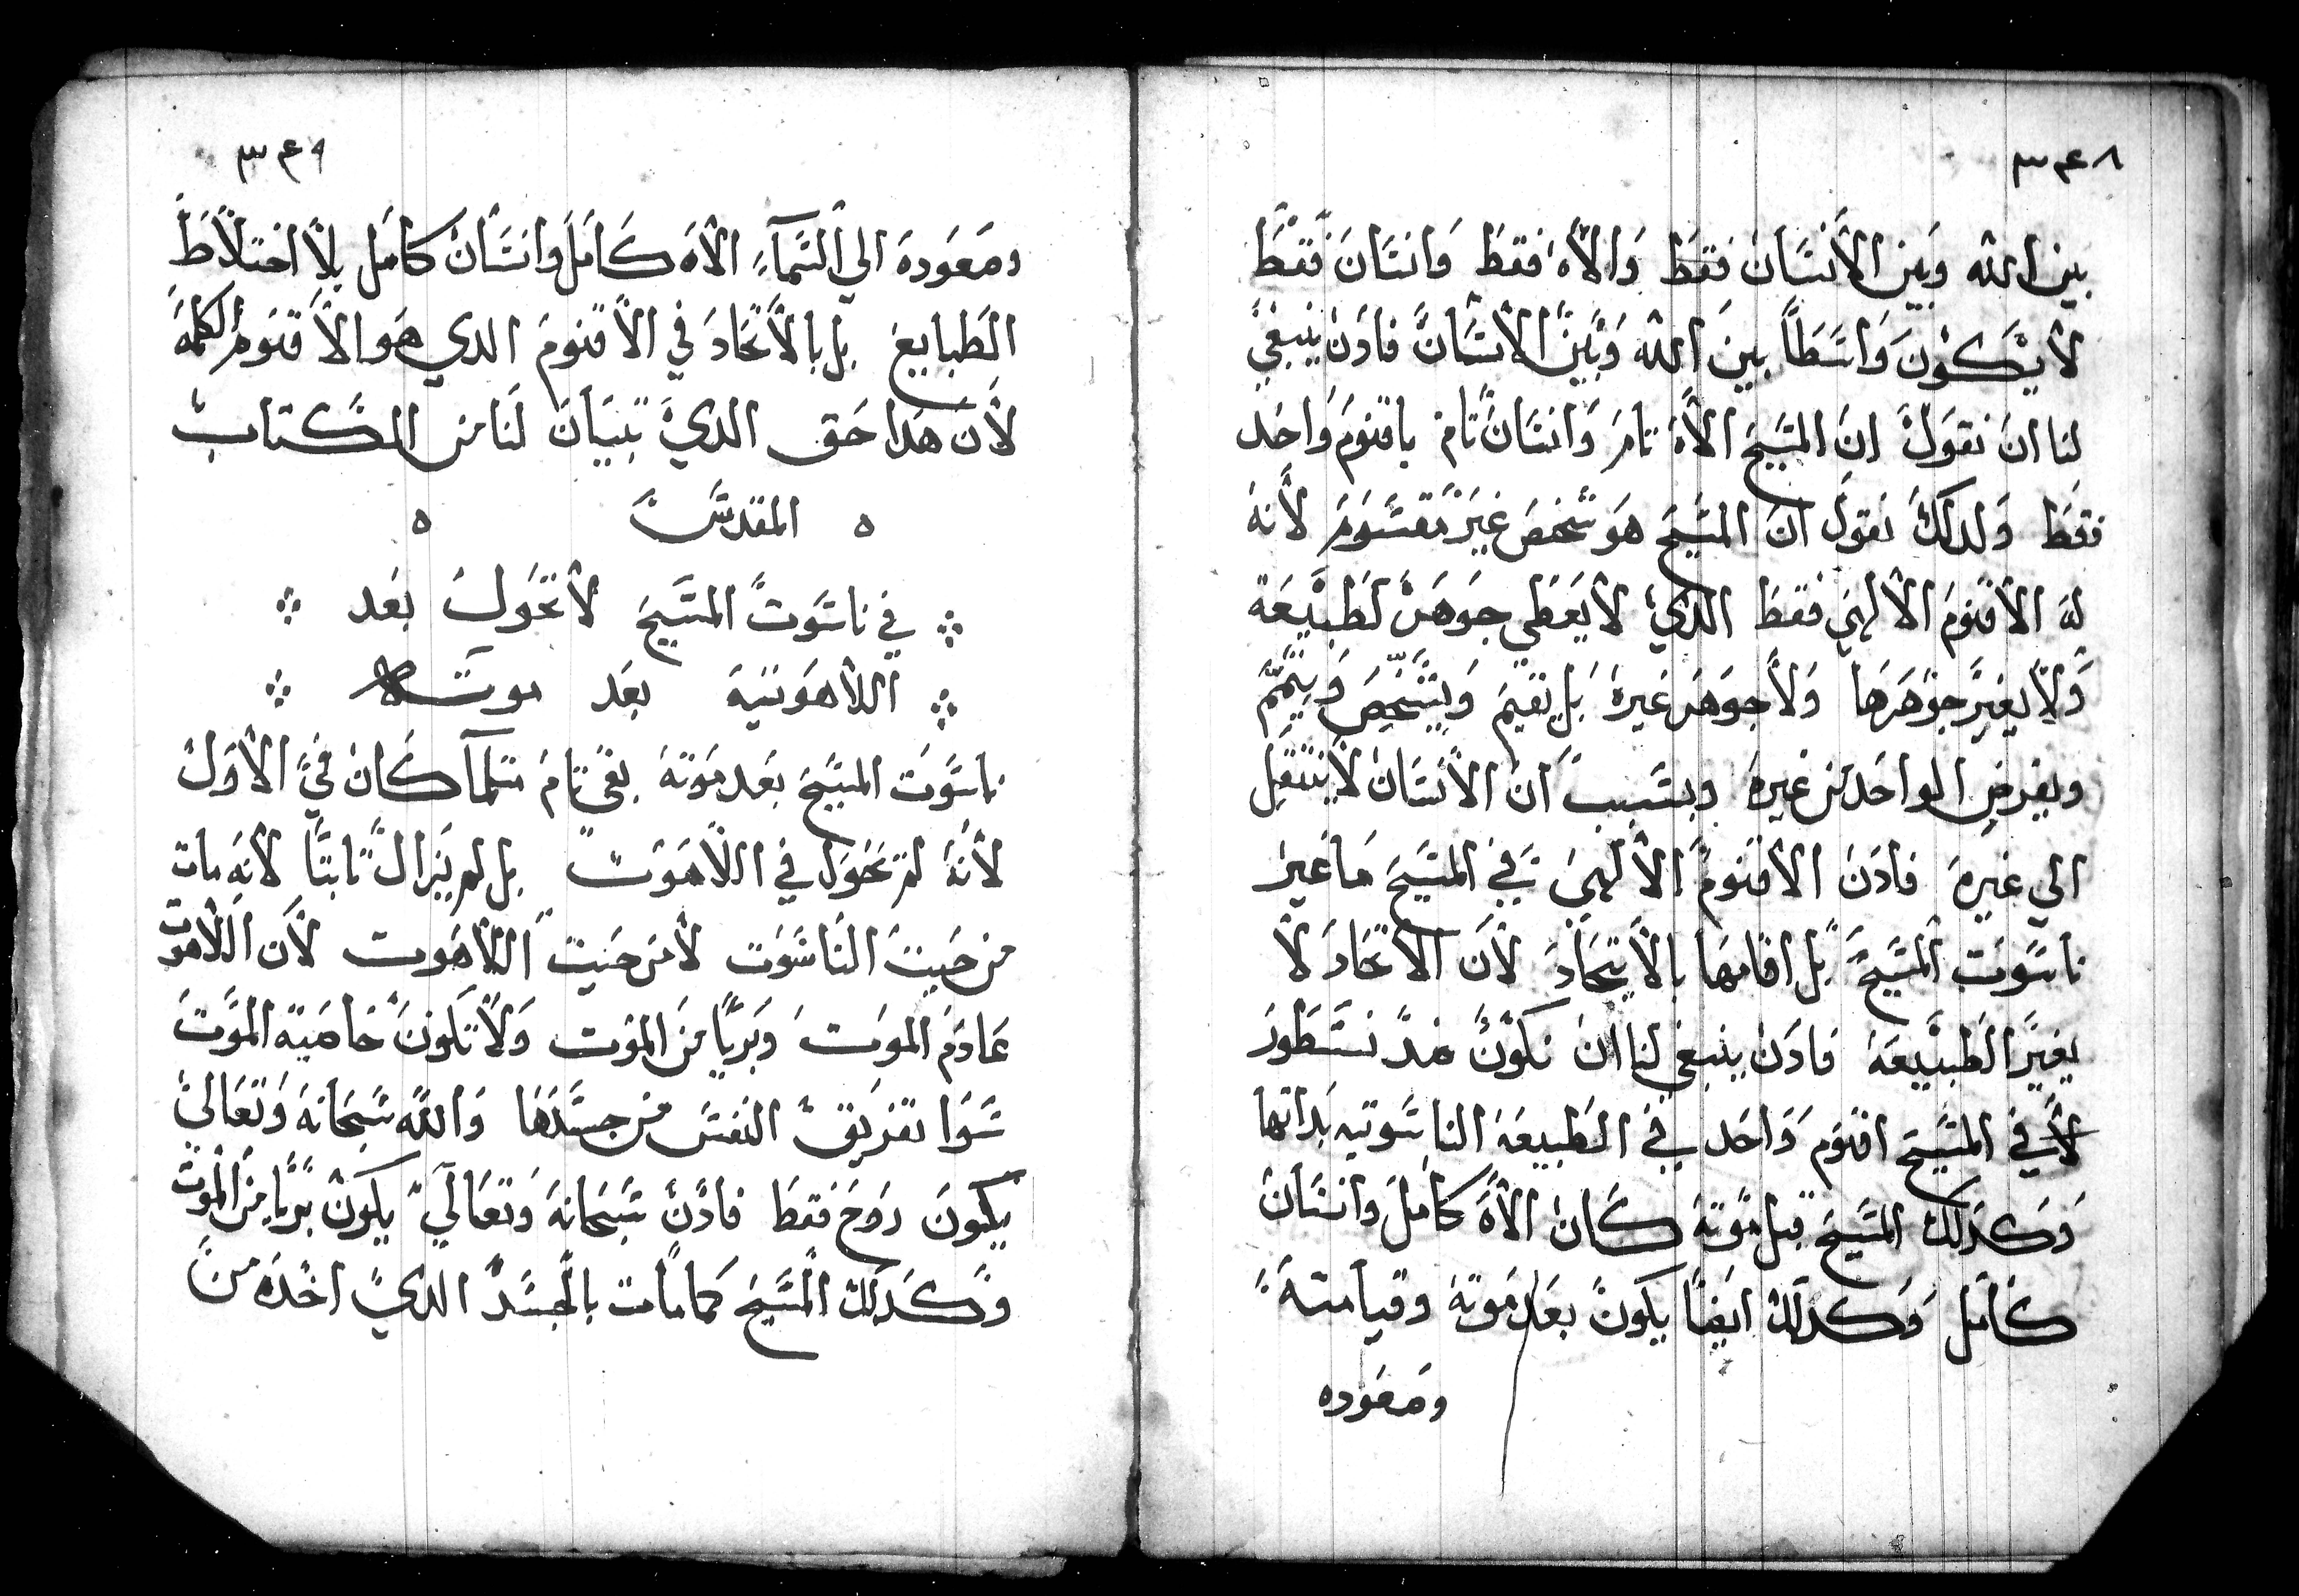 ٣٤٨
بين الله وبين الانسان فقط والاه فقط وانسان فقط
لا يكون واسطاً بين الله وبين الانسان فادن ينبغي
لنا ان نقول ان المسيح الاه تام وانسان تام باقنوم واحد
فقط ولدلك نقول ان المسيح هو شخص غير مقسوم لانه
له الاقنوم الالهي فقط الدي لا يعطي جوهر لطبيعة
ولا يغير جوهرها ولا جوهر غيره بل يقيم ويشخص ويتمم
ويفرض الواحد من غيره وبسبب ان الانسان لا ينتقل
الي غيره فادن الاقنوم الالهي في المسيح ما غير
ناسوت المسيح بل اقامها بالاتحاد لان الاتحاد لا
يغير الطبيعة فادن ينبغي لنا ان نكون ضد نسطور
لان في المسيح اقنوم واحد في الطبيعة الناسوتيه بداتها
وكدلك المسيح قبل موته كان الاه كامل وانسان
كامل وكدلك ايضاً يكون بعد موته وقيامته
وصعوده
٣٤٩
وصعوده الي السمآء الاه كامل وانسان كامل بلا اختلاط
الطبايع بل بالاتحاد في الاقنوم الدي هو الاقنوم الكلمة
لان هدا حق الدي تبيان لنا من الكتاب
المقدس
في ناسوت المسيح لا تحول بعد
اللاهوتية بعد موته
ناسوت المسيح بعد موته بقي تام مثلمآ كان في الاول
لانه لم تحول في اللاهوت بل لم يزال ثابتاً لانه مات
من حيث الناسوت لا من حيث اللاهوت لان اللاهوت
عادم الموت وبرياً من الموت ولا تكون خاصية الموت
سوا تفريق النفس من جسدها والله سبحانه وتعالي
يكون روح فقط فادن سبحانه وتعالي يكون برياً من الموت
وكدلك المسيح كما مات بالجسد الدي اخده من